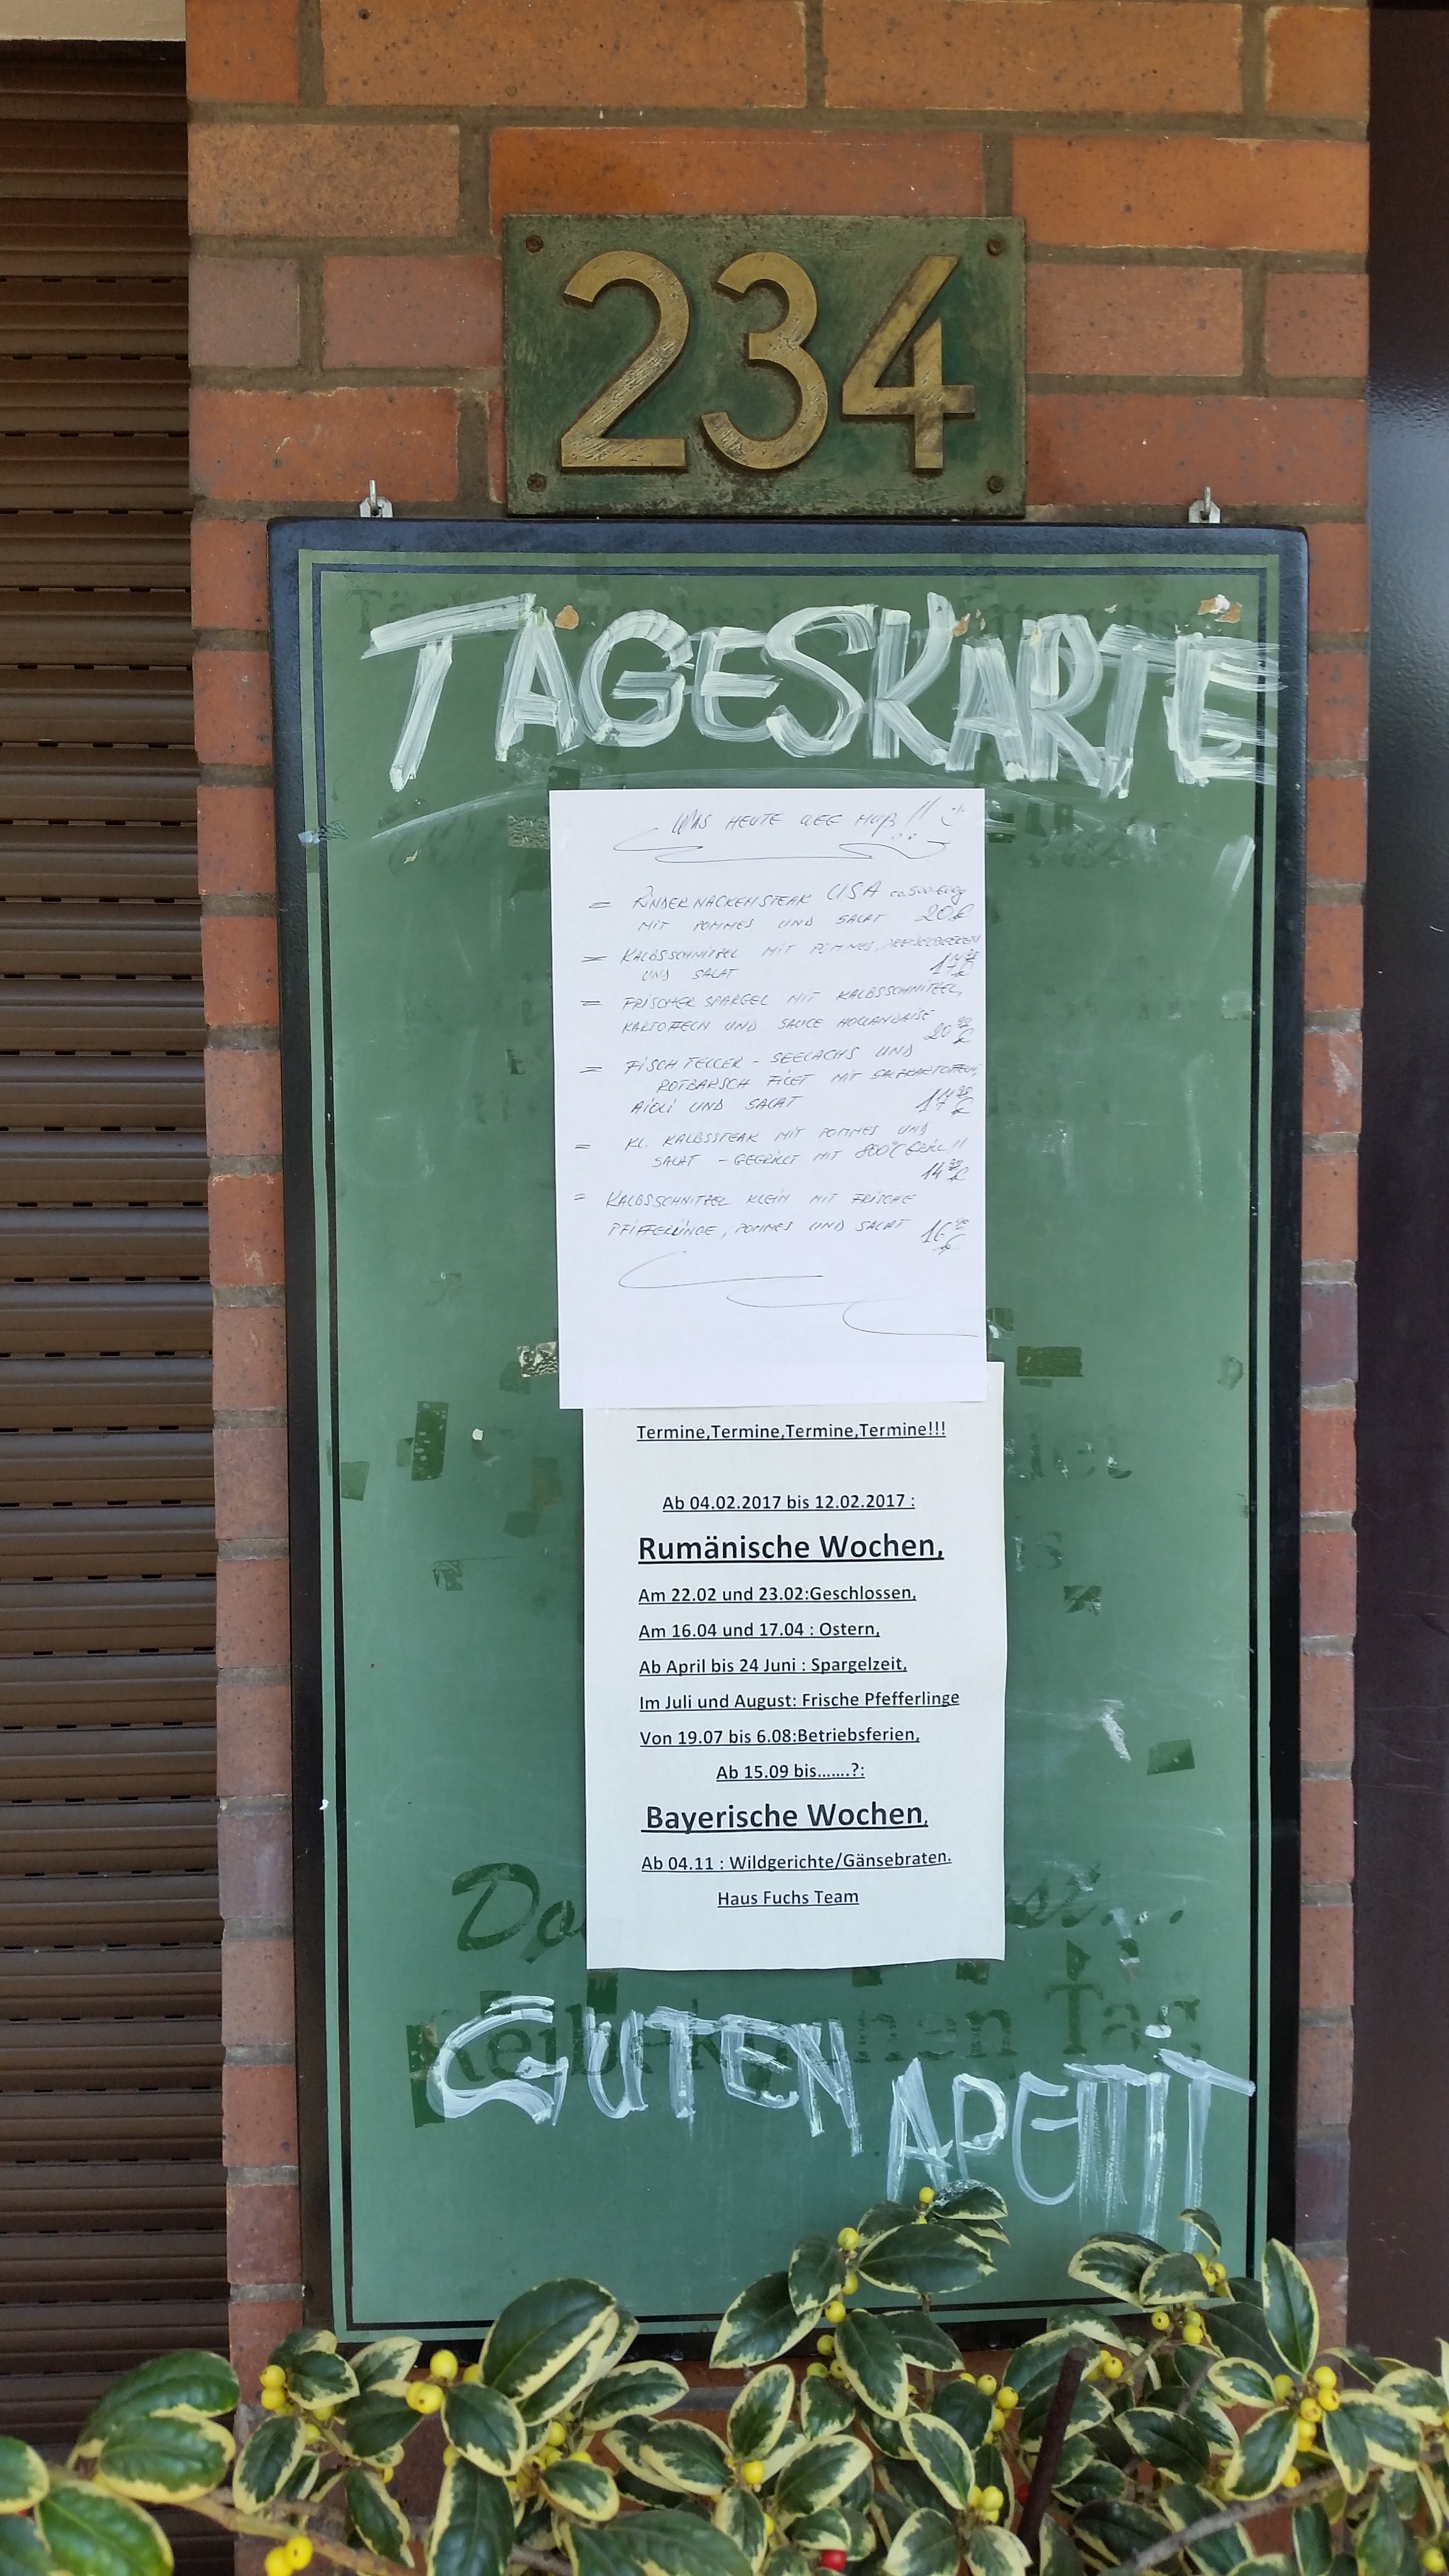 234
TAGESKARTE
WAS HEUTE WEG MUß!!
= RINDERNACKENSTEAK USA ca. 500-600g
MIT POMMES UND SALAT 20 €
= KALBSSCHNITZEL MIT POMMES, PREISELBEEREN
UND SALAT
= FRISCHER SPARGEL MIT KALBSSCHNITZEL,
KARTOFFELN UND SAUCE HOLLANDAISE 20 90 €
= FISCHTELLER - SEELACHS UND
ROTBARSCH FILET MIT SALZKARTOFFELN,
AIOLI UND SALAT
= KL. KALBSSTEAK MIT POMMES UND
SALAT - GEGRILLT MIT 800°C GRILL!!
14 90 €
= KALBSSCHNITZEL KLEIN MIT FRISCHE
PFIFFERLINGE, POMMES UND SALAT 16 90 €
Termine,Termine,Termine,Termine!!!
Ab 04.02.2017 bis 12.02.2017 :
Rumänische Wochen,
Am 22.02 und 23.02:Geschlossen,
Am 16.04 und 17.04 : Ostern,
Ab April bis 24 Juni : Spargelzeit,
Im Juli und August: Frische Pfefferlinge
Von 19.07 bis 6.08:Betriebsferien,
Ab 15.09 bis.......?:
Bayerische Wochen,
Ab 04.11 : Wildgerichte/Gänsebraten.
Haus Fuchs Team
GUTEN APETIT